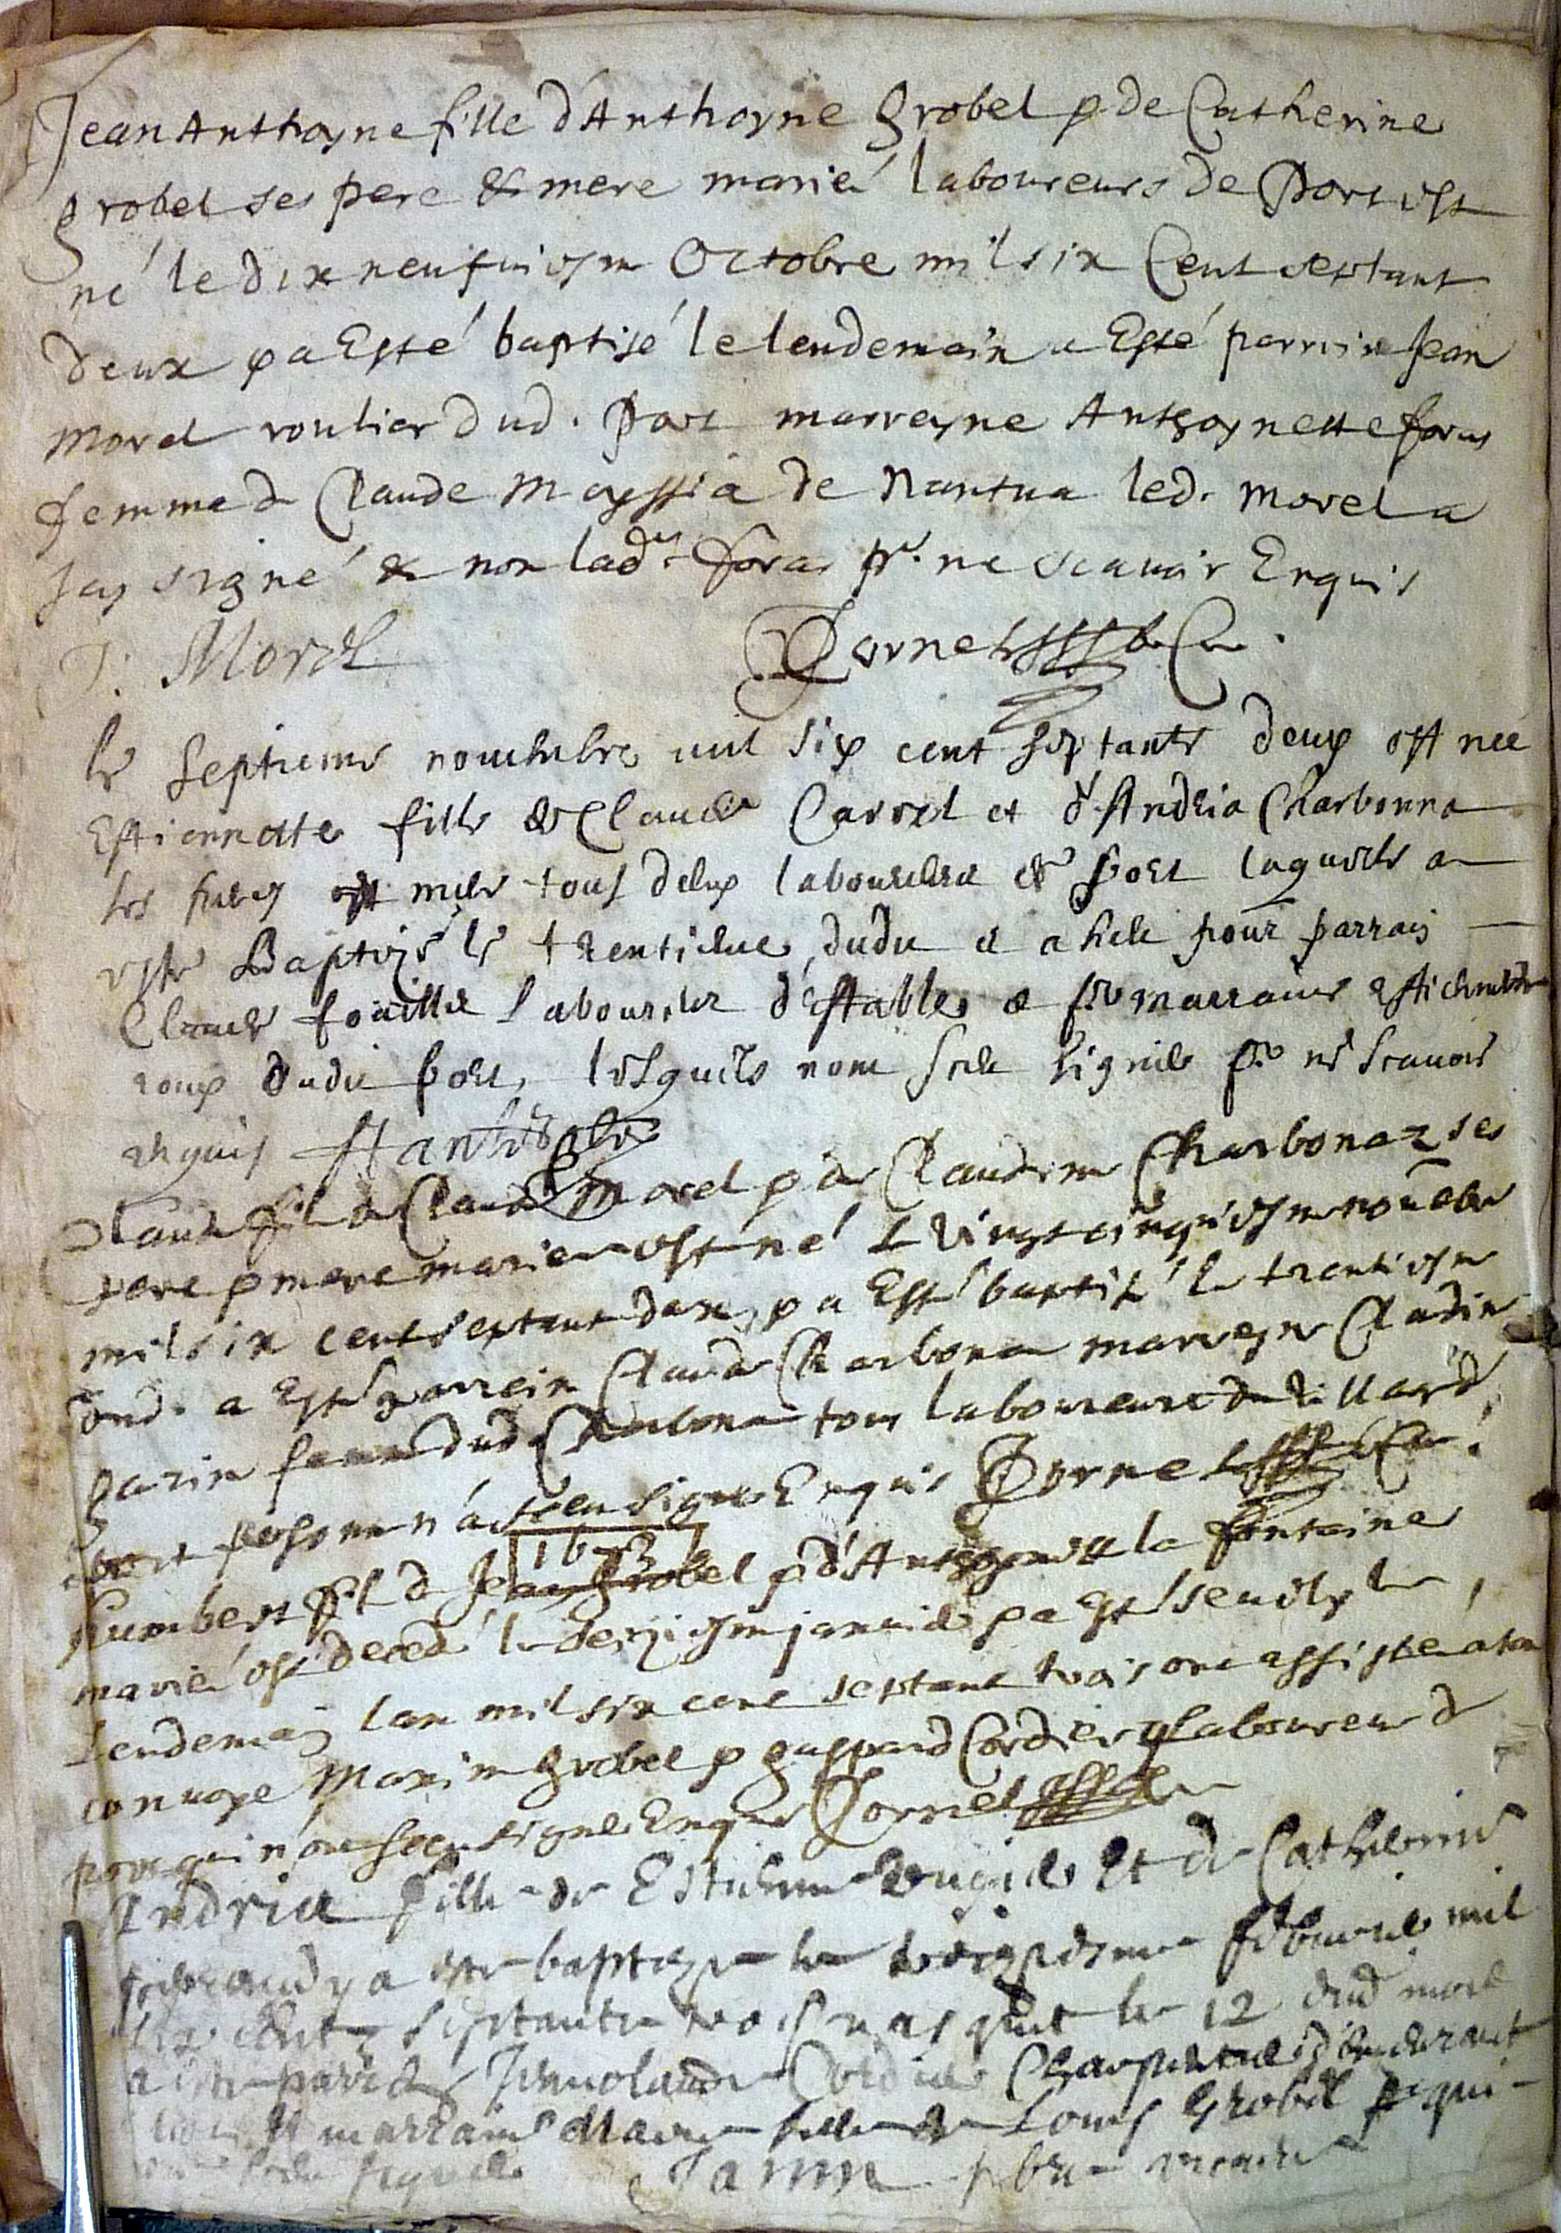 Jean Anthoyne fille d'Anthoyne grobel & de Catherine
grobel ses pere & mere marié laboureurs de Port est
né le dix neufuiesm Octobre mil six Cent septant
deux & a Esté baptisé le lendemain a Esté parrin Jean
Morel voulier dud. Port marreyne Anthoynette foras
femme de Claude Mayssia de Nantua led. Morel a
Icy signé & non lade foras pr. ne scauoir Enquis
J. Morel Jornet Cu.
le septieme nouembre mil six cent septante deux est née
Estiennette fille de Claude Carrel et d'Andria Charbonna
ses pere et mere tous deux laboureur de port laquelle a
este Baptisé le trentieme dudit et a heu pour parrain
Claude fouillie Laboureur d'estables & pr marraine estiennette
roux dudit port, lesquels nont sceu signer pr ne scauoir
enquis
Claude fil de Claude Morel & de Claudine Charbonaz ses
pere & mere marie est né le vingt cinquiesme nouebre
mil six cent septant deux & a Esté baptisé le trentiesme
dud. a Esté parrein Claude Charbona marreyne Cladine
gazin femme dud Charbona tous laboureurs du Villard
personne n'a sceu signer Enquis Jornet Cu.
1673
humbert fil de Jean grobel & d'Anthoynette la fontaine
marié est deced le janvie & a Esté seuely le
lendemain lan mil six cent septant trois ont assiste a son
conuoye Maxim grobel & gaspard Cordier laboureur de
port qui n'ont sceu signer Enquis Jornet
Andrie fille de Estienne et de Catherine
a este baptize le feburier mil
six cent septante trois nasquit le 12 dud mois
a este parrain Cordier
et marraine Marie fille de Louis Grobel qui
sceu signer